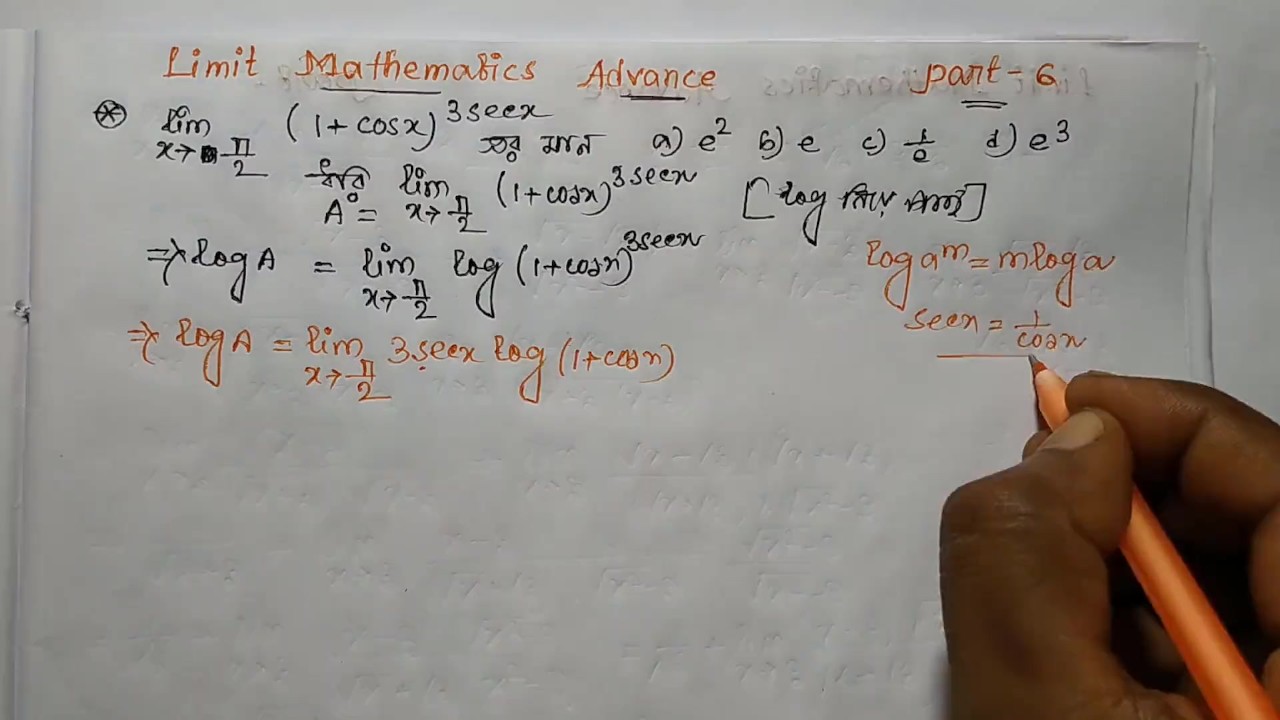 Limit Mathematics Advance part-6
lim x→π/2 (1+cosx)^3secx এর মান a) e^2 b) e c) 1/e d) e^3
ধরি A = lim x→π/2 (1+cosx)^3secx [log নিয়ে পাই]
⇒ log A = lim x→π/2 log (1+cosx)^3secx
log a^m = m log a
secx = 1/cosx
⇒ log A = lim x→π/2 3secx log (1+cosx)